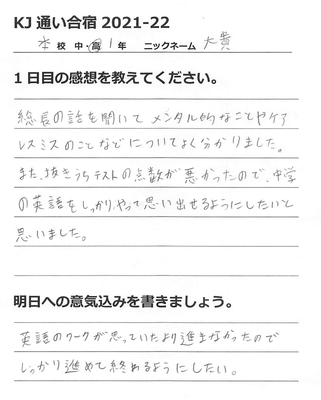 KJ 通い合宿 2021-22
本 校 中・高 1 年 ニックネーム 大貴
1日目の感想を教えてください。
総長の話を聞いてメンタル的なことやケア
レスミスのことなどについてよく分かりました。
また、抜きうちテストの点数が悪かったので、中学
の英語をしっかりやって思い出せるようにしたいと
思いました。
明日への意気込みを書きましょう。
英語のワークが思っていたより進まなかったので
しっかり進めて終わるようにしたい。